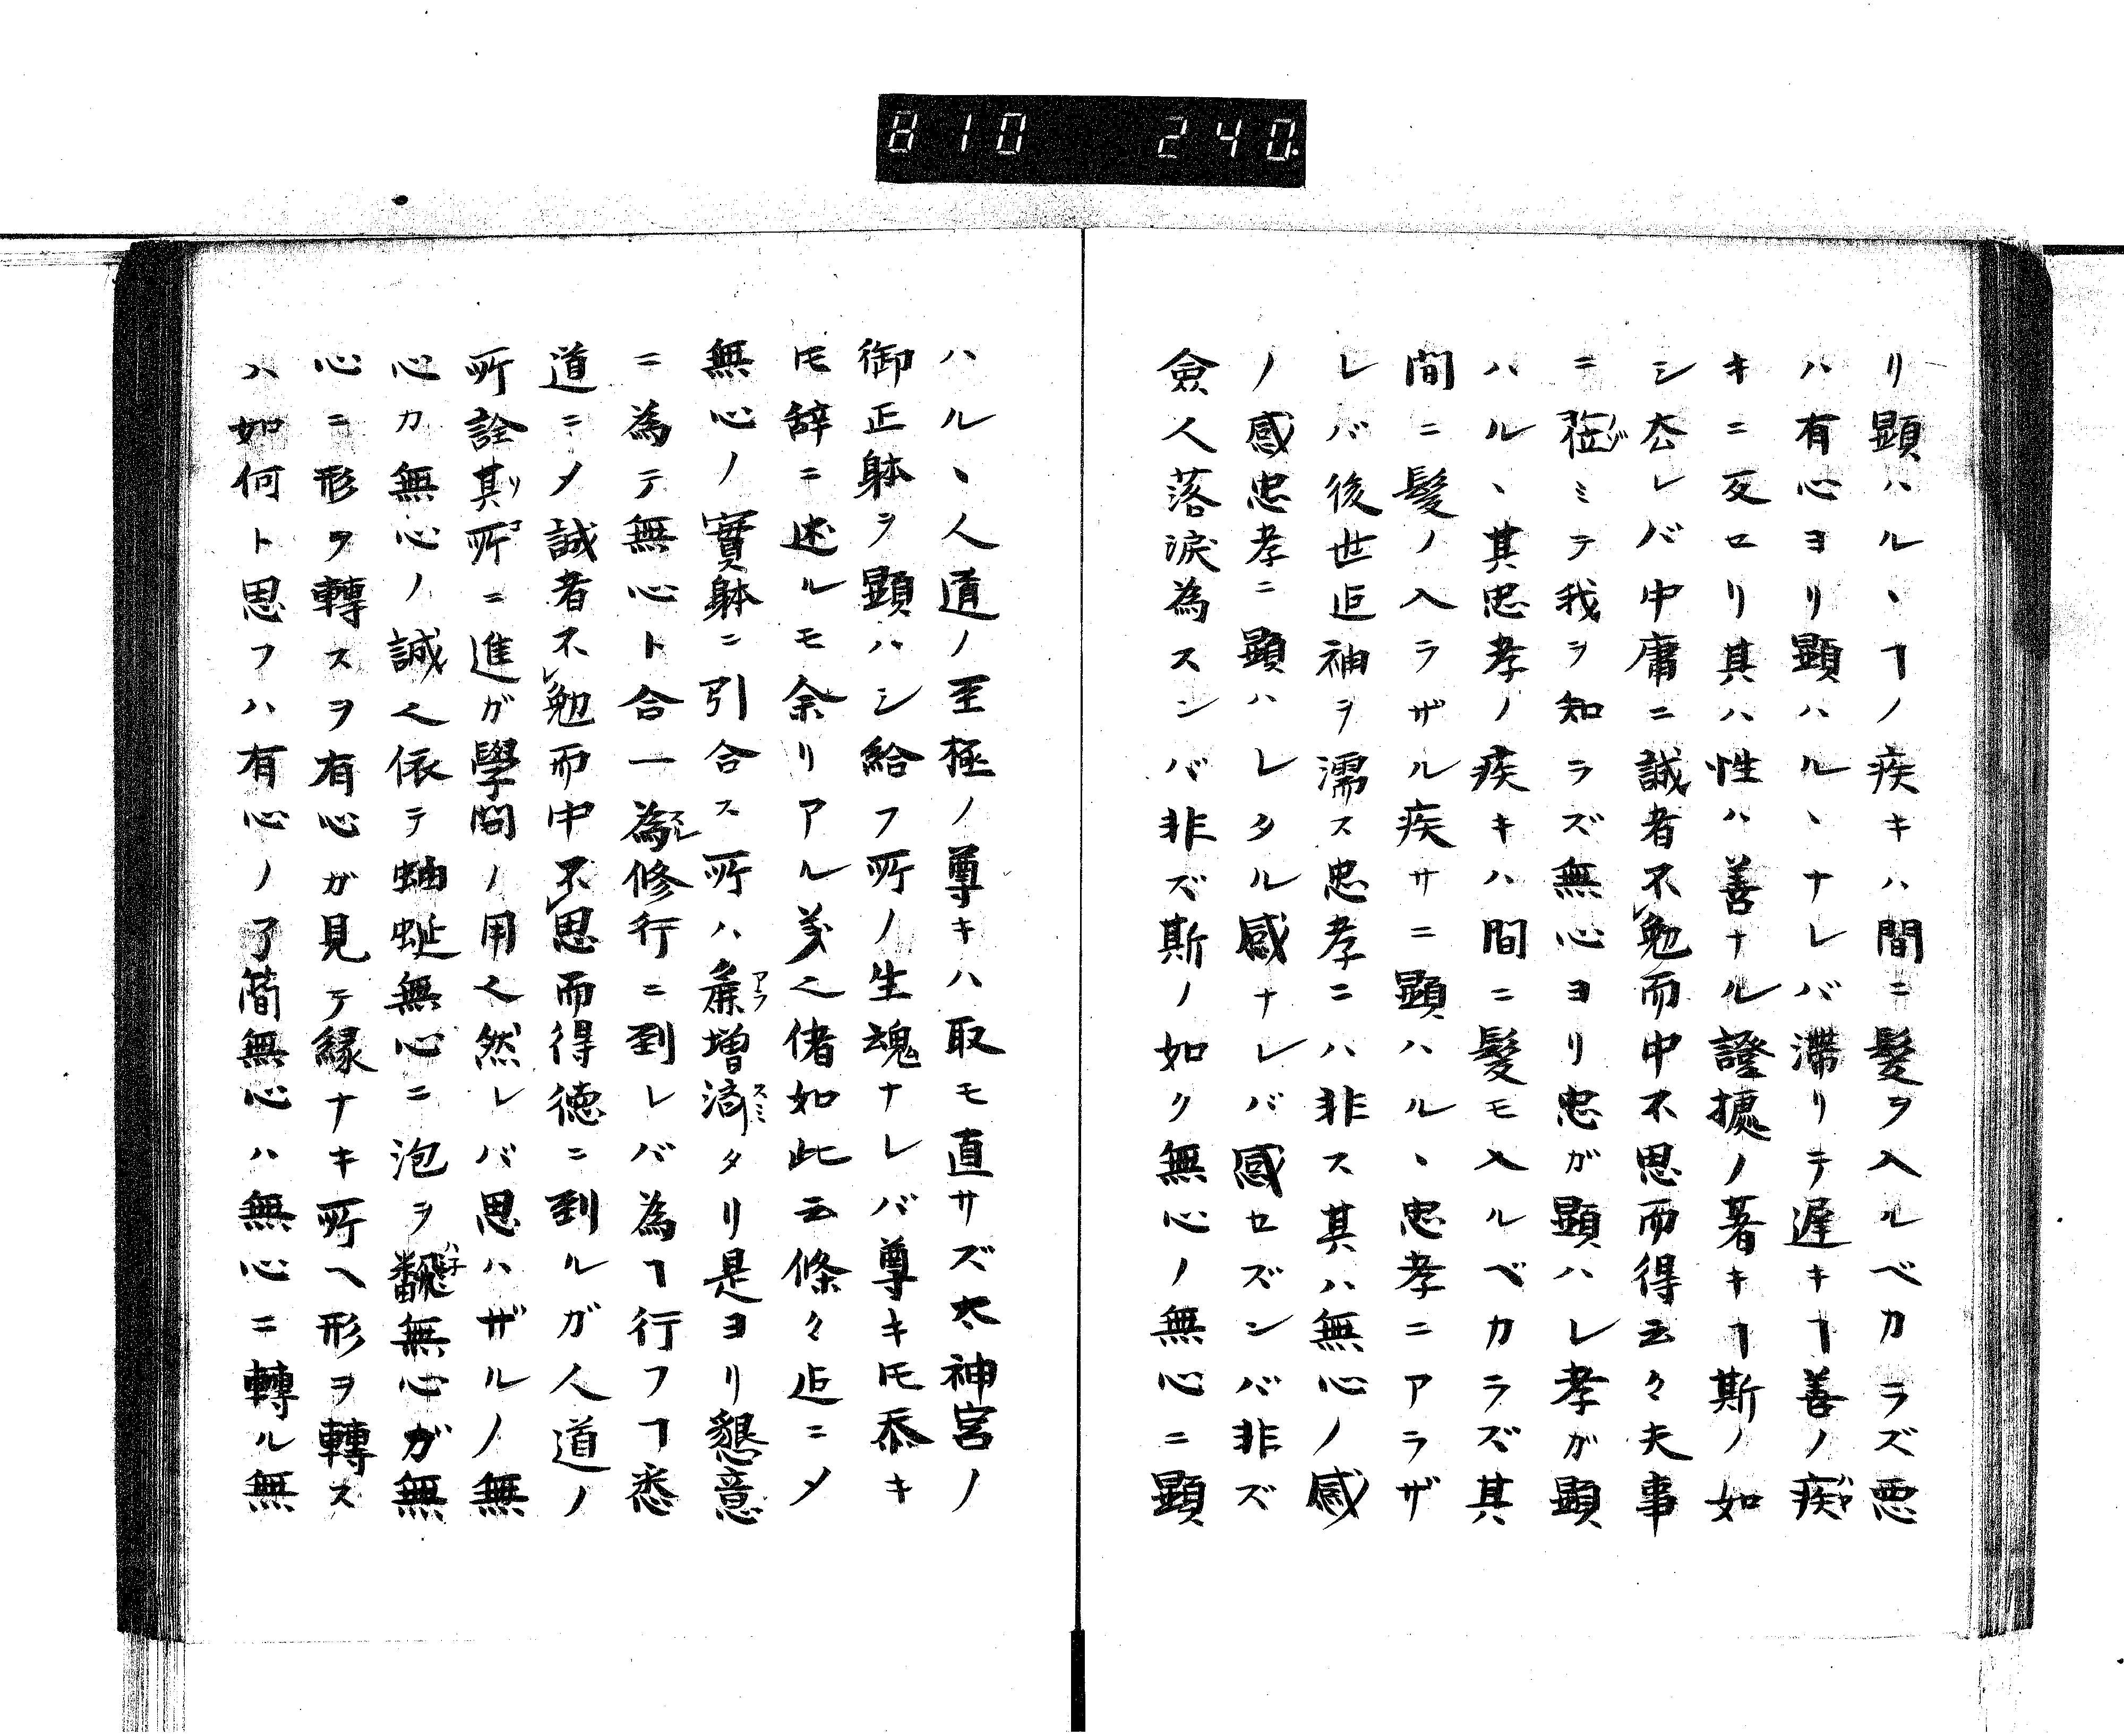 810 240.
リ顕ハルヽヿノ疾キハ間ニ髪ヲ入ルベカラズ悪
ハ有心ヨリ顕ハルヽナレバ滞リテ遅キヿ善ノ疾
キニ反セリ其ハ性ハ善ナル證摅ノ著キヿ斯ノ如
シ夳レバ中庸ニ誠者不レ勉而中不思而得云々夫事
ニ ミテ我ヲ知ラズ無心ヨリ忠ガ顕ハレ孝ガ顕
ハルヽ其忠孝ノ疾キハ間ニ髪モ入ルベカラズ其
間ニ髪ノ入ラザル疾サニ顕ハルヽ忠孝ニアラザ
レバ後世迠袖ヲ濡ス忠孝ニハ非ス其ハ無心ノ感
ノ感忠孝ニ顕ハレタル感ナレバ感セズンバ非ズ
僉人落涙為スンバ非ズ斯ノ如ク無心ノ無心ニ顕
ハルヽ人道ノ至極ノ尊キハ取モ直サズ太神宮ノ
御正躰ヲ顕ハシ給フ所ノ生魂ナレバ尊キ𪜈忝キ
𪜈辞ニ述ルモ余リアル義也偖如此云條々迠ニ〆
無心ノ實躰ニ引合ス所ハ增済スミタリ是ヨリ懇意
ニ為テ無心ト合一為スレ修行ニ到レバ為ヿ行フヿ悉
道ニ〆誠者不レ勉而中不レ思而得徳ニ到ルガ人道ノ
所詮其所ニ進ガ學問ノ用也然レバ思ハザルノ無
心カ無心ノ誠也依テ蚰蜒無心ニ泡ヲ飜無心ガ無
心ニ形ヲ轉スヲ有心ガ見テ縁ナキ所ヘ形ヲ轉ス
ハ如何ト思フハ有心ノ了簡無心ハ無心ニ轉ル無